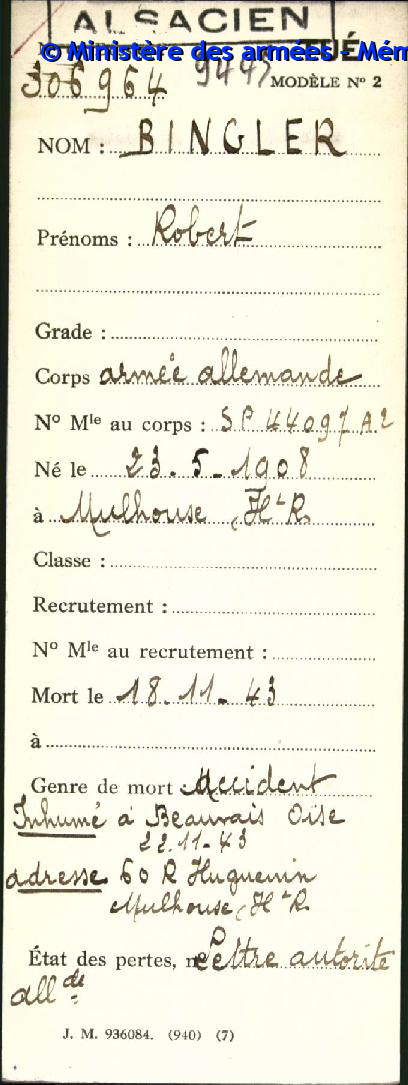 ALSACIEN
TUÉ
© Ministère des armées - Mém
306964 9443 MODÈLE N° 2
NOM : BINGLER
Prénoms : Robert
Grade :
Corps armée allemande
N° Mle au corps : SP 44097 A2
Né le 23.5.1908
à Mulhouse (Ht R
Classe :
Recrutement :
N° Mle au recrutement :
Mort le 18.11.43
à
Genre de mort Accident
Inhumé à Beauvais Oise
22.11.43
adresse 60 R Huguenin
Mulhouse (Ht R
État des pertes, Lettre autorité
allde
J. M. 936084. (940) (7)